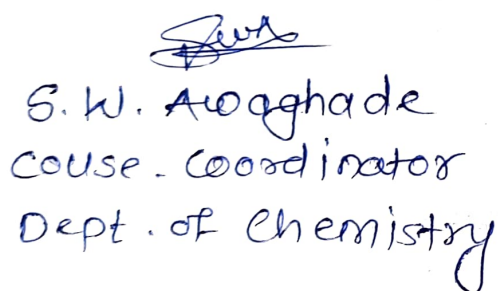 S. W. Awaghade
Couse. Coordinator
Dept. of Chemistry